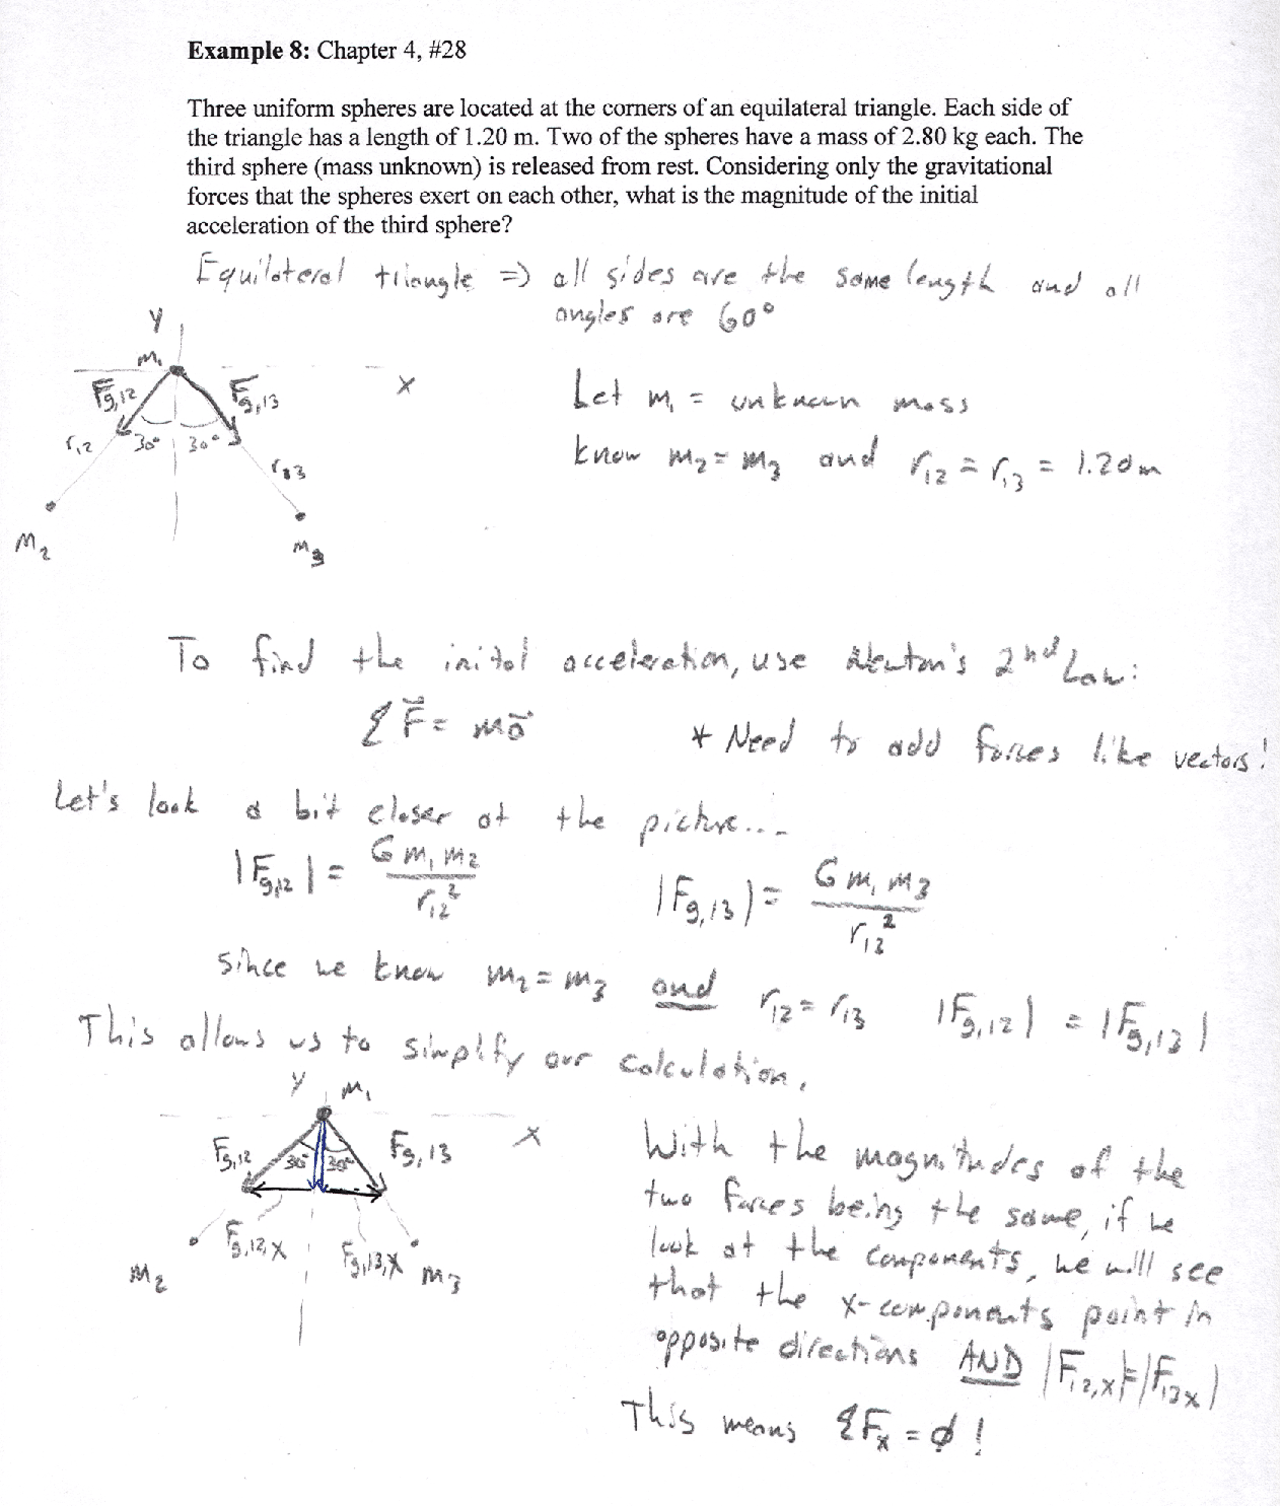 Example 8: Chapter 4, #28
Three uniform spheres are located at the corners of an equilateral triangle. Each side of
the triangle has a length of 1.20 m. Two of the spheres have a mass of 2.80 kg each. The
third sphere (mass unknown) is released from rest. Considering only the gravitational
forces that the spheres exert on each other, what is the magnitude of the initial
acceleration of the third sphere?
Equilateral triangle => all sides are the same length and all
angles are 60°
y
m₁
F_g,12
F_g,13
x
r₁₂
30°
30°
r₁₃
m₂
m₃
Let m₁ = unknown mass
know m₂ = m₃ and r₁₂ = r₁₃ = 1.20m
To find the inital acceleration, use Newton's 2nd Law:
ΣF⃗ = ma⃗
* Need to add forces like vectors!
Let's look a bit closer at the picture...
|F_g,12| = G m₁ m₂ / r₁₂²
|F_g,13| = G m₁ m₃ / r₁₃²
since we know m₂ = m₃ and r₁₂ = r₁₃ |F_g,12| = |F_g,13|
This allows us to simplify our calculation.
y
m₁
x
F_g,12
30°
30°
F_g,13
F_g,12,x
F_g,13,x
m₂
m₃
With the magnitudes of the
two forces being the same, if we
look at the components, we will see
that the x-components point in
opposite directions AND |F₁₂,x|=|F₁₃x|
This means ΣFx = ∅ !